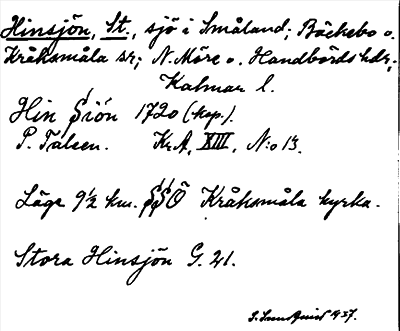 Hinsjön, St., sjö i Småland; Bäckebo o.
Kråksmåla sr; N. Möre o. Handbörds hdr,
Kalmar l.
Hin Siön 1720 (kop.).
P. Taleen. Kr.A, XIII, N:o 13.
Läge 9½ km. SSÖ Kråksmåla kyrka.
Stora Hinsjön G. 21.
1937.